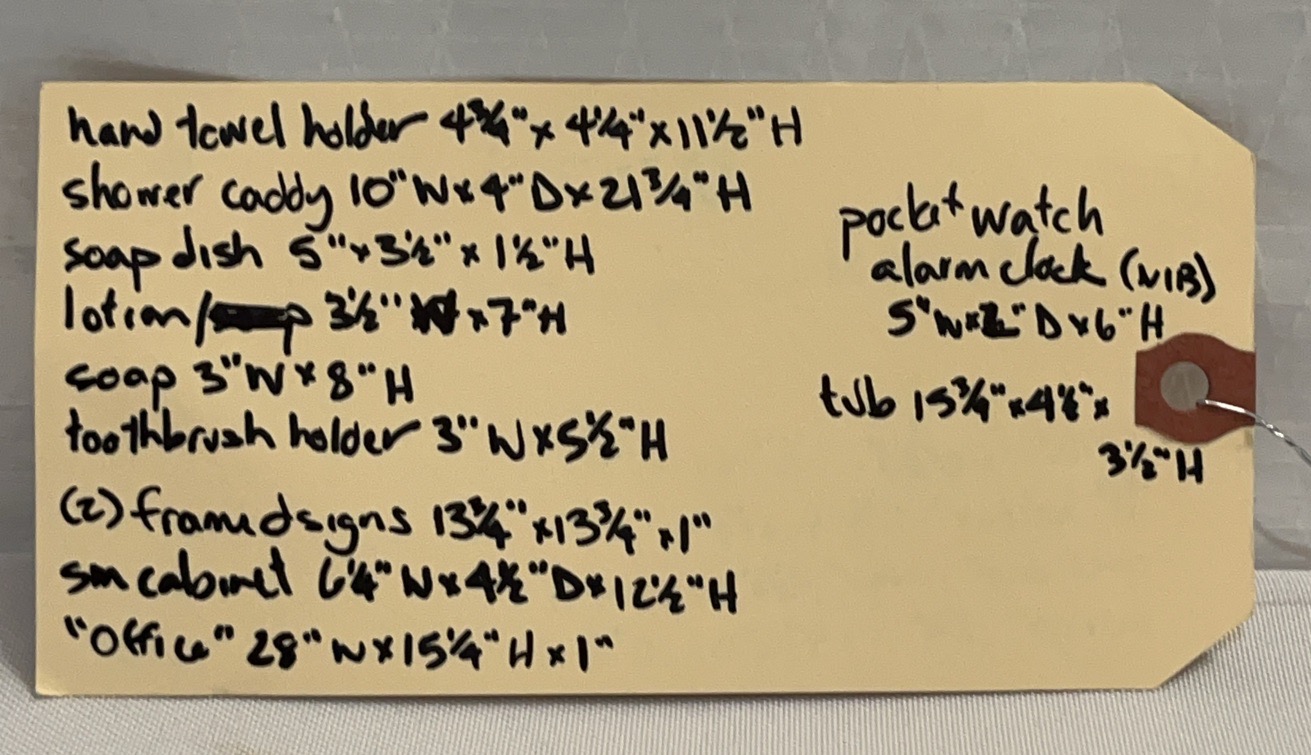 hand towel holder 4¾" x 4¼" x 11½" H
shower caddy 10" W x 4" D x 21¾" H
soap dish 5" x 3½" x 1½" H
lotion/ 3½" x 7" H
soap 3" W x 8" H
toothbrush holder 3" W x 5½" H
(2) framed signs 13¾" x 13¾" x 1"
sm cabinet 6¼" W x 4½" D x 12½" H
"Office" 28" W x 15¼" H x 1"
pocket watch
alarm clock (NIB)
5" W x 2" D x 6" H
tub 15¾" x 4½" x
3½" H